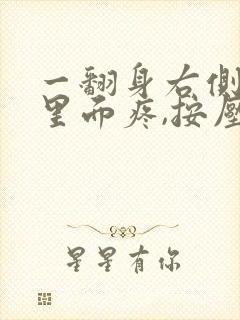 一翻身右侧
里而疼,按压
星星有你